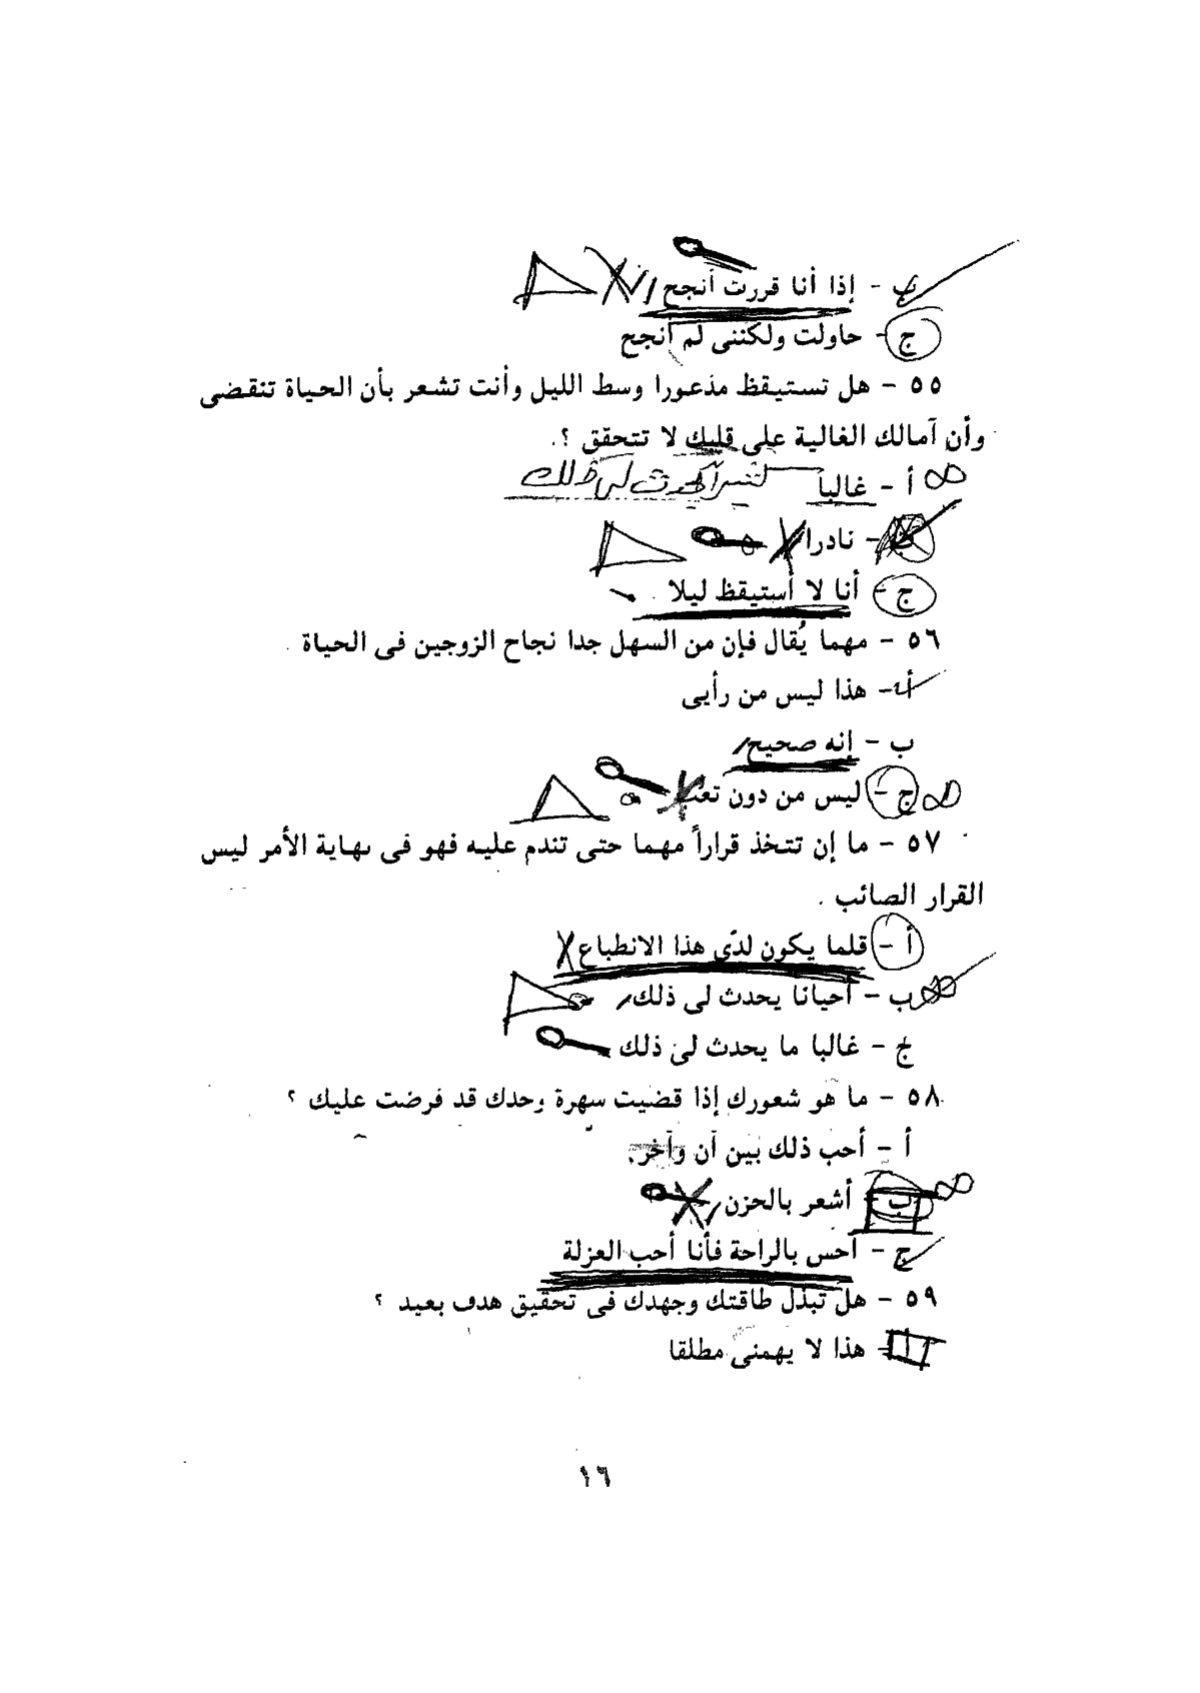 ب - إذا أنا قررت أنجح
ج - حاولت ولكننى لم أنجح
٥٥ - هل تستيقظ مذعورا وسط الليل وأنت تشعر بأن الحياة تنقضى
وأن آمالك الغالية على قلبك لا تتحقق ؟.
أ - غالباً
ب - نادرا
ج - أنا لا أستيقظ ليلا .
٥٦ - مهما يُقال فإن من السهل جدا نجاح الزوجين فى الحياة .
أ - هذا ليس من رأيى
ب - إنه صحيح
ج - ليس من دون تعب
٥٧ - ما إن تتخذ قراراً مهما حتى تندم عليه فهو فى نهاية الأمر ليس
القرار الصائب .
أ - قلما يكون لدّى هذا الانطباع
ب - أحيانا يحدث لى ذلك
ج - غالبا ما يحدث لى ذلك
٥٨ - ما هو شعورك إذا قضيت سهرة وحدك قد فرضت عليك ؟
أ - أحب ذلك بين آن وآخر.
ب - أشعر بالحزن
ج - أحس بالراحة فأنا أحب العزلة
٥٩ - هل تبذل طاقتك وجهدك فى تحقيق هدف بعيد ؟
أ - هذا لا يهمنى مطلقا
١٦